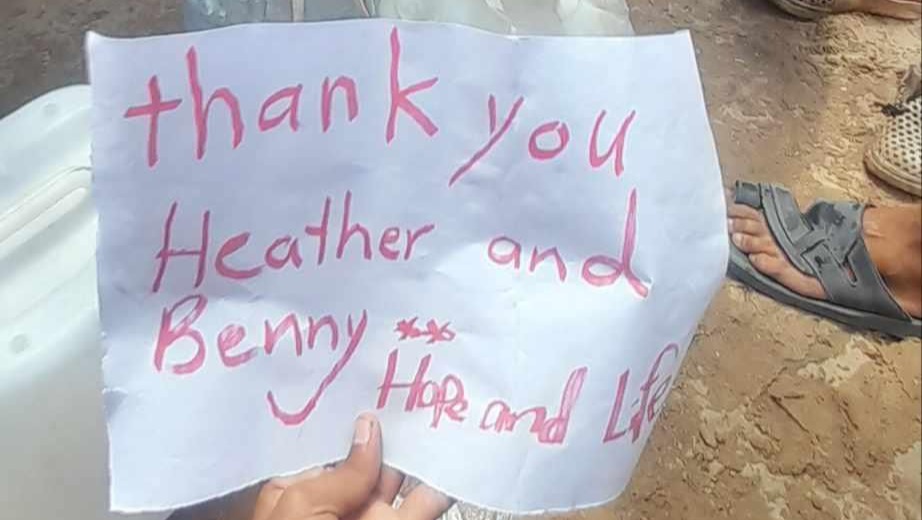 thank you
Heather and
Benny **
Hope and Life